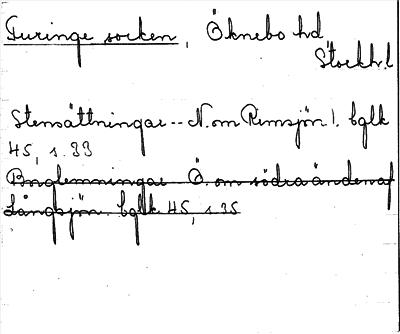 Turinge socken, Öknebo hd
Stockh. l
Stensättningar -- N. om Remsjön l. bglk
45, s. 33
Boglämningar Ö. om södra änden af
Långsjön bglk 45, s 35